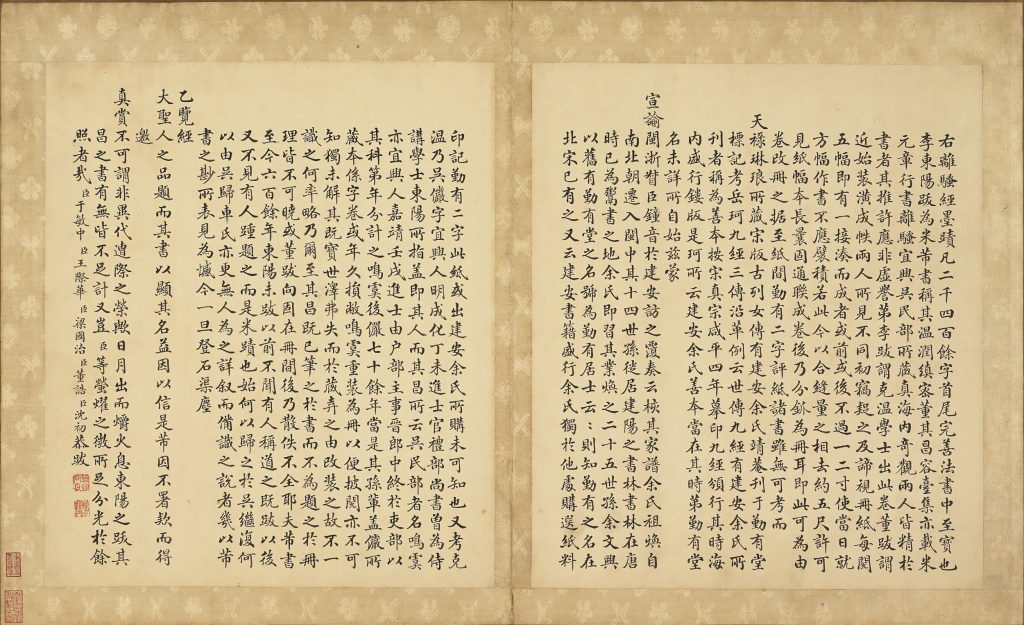 右離騷經墨蹟凡二千四百餘字首尾完善法書中至寶也
李東陽跋為米芾書稱其溫潤縝密董其昌容臺集亦載米
元章行書離騷宜興吳民部所藏真海內奇觀兩人皆精於
書者其推許應非虛譽第李跋謂克溫學士出此卷董跋謂
近始裝潢成帙兩人所見不同初竊疑之及諦視冊紙每閱
五幅即有一接湊而成者或前或後不過一二寸使當日就
方幅作書不應襞積若此今以合縫量之相去約五尺許可
見紙幅本長曩固通聯成卷後乃分鈲為冊耳即此可為由
卷改冊之据至紙間勤有二字詳綎諸書雖無可考而
天
祿琳琅所藏宋版古列女傳有建安余氏靖菴刊于勤有堂
標記考岳珂九經三傳沿革例云世傳九經有建安余氏所
刊者稱為善本按宋真宗咸平四年摹印九經頒行其時海
內盛行鏤版是珂所云建安余氏善本當在其時第勤有堂
名未詳所自始茲蒙
宣諭閩浙督臣鐘音於建安訪之覆奏云檢其家譜余氏祖煥自
南北朝遷入閩中其十四世孫徙居建陽之書林書林在唐
時已為鬻書之地余氏即習其業煥之二十五世孫余文興
以舊有勤有堂之名號為勤有居士云云則知勤有之名在
北宋已有之又云建安書籍盛行余氏獨於他處購選紙料
印記勤有二字此紙或出建安余氏所購未可知也又考克
溫乃吳儼字宜興人明成化丁未進士官禮部尚書曾為侍
講學士東陽所指蓋即其人而其昌所云吳民部者名鳴虞
亦宜興人嘉靖壬戌進士由戶部主事晉郎中終於吏部以
其科第年分計之鳴虞後儼七十餘年當是其孫軰蓋儼所
藏本係字卷或年久損敝鳴虞重裝為冊以便披閱亦不可
知獨未解其既寶世澤弗失而於藏弆之由改裝之故不一
識之何率略乃爾至其昌既已筆之於書而不為題之於冊
理皆不可曉或董跋向固在冊間後乃散佚不全耶夫芾書
至今六百餘年東陽未跋以前不聞有人稱道之既跋以後
又不見有人踵題之而是米蹟也始何以歸之於吳繼復何
以由吳歸車氏亦更無人為之詳叙而備識之說者幾以芾
書之尠所表見為憾今一旦登石渠塵
乙覽經
大聖人之品題而其書以顯其名益因以信是芾因不署款而得
邀
真賞不可謂非異代遭際之榮歟日月出而爝火息東陽之跋其
昌之書有無皆不足計又豈臣等螢燿之微所足分光於餘
照者哉臣于敏中臣王際華臣梁國治臣董誥臣沈初恭跋